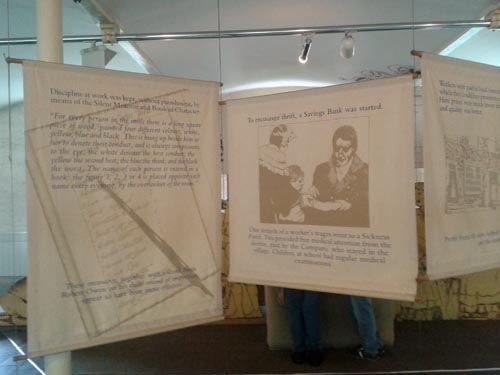 Discipline at work was kept, without punishment, by
means of the Silent Monitor and Book of Character.
"For every person in the mill, there is a long square
piece of wood, painted four different colours, white,
yellow, blue and black. This is hung up beside him or
her to denote their conduct, and is always conspicuous
to the eye; the white denotes the best conduct, the
yellow the second best, the blue the third, and the black
the worst. The name of each person is entered in a
book; the figure 1, 2, 3 or 4 is placed opposite each
name every evening, by the overlooker of the room."
These measures, together with
Robert Owen
appear to have been
To encourage thrift, a Savings Bank was started.
One sixtieth of a worker's wages went to a Sickness
Fund. This provided free medical attention from the
doctor, paid by the Company, who stayed in the
village. Children at school had regular medical
examinations.
Workers were paid in
which they could buy
Here prices were
and quality was better.